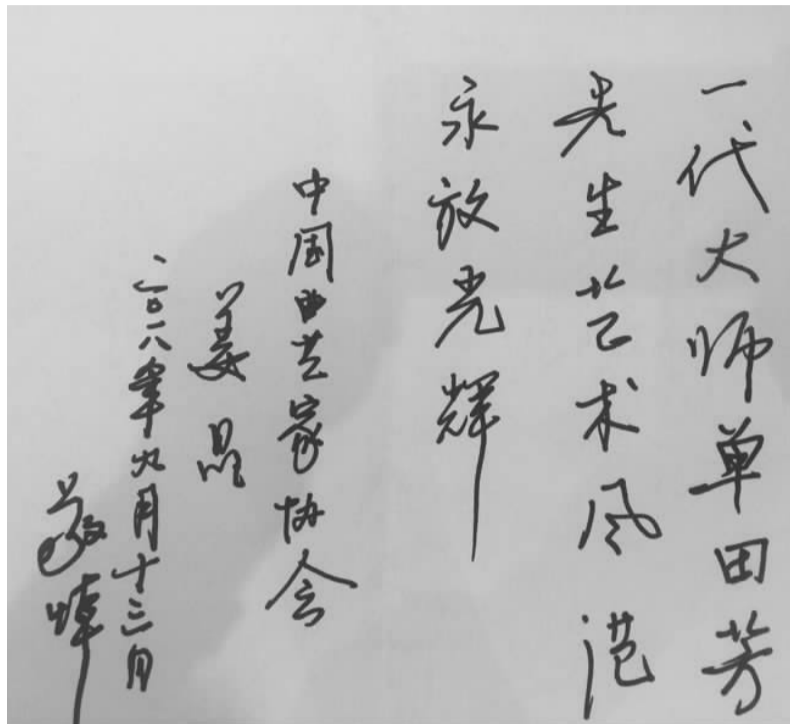 一代大师单田芳
先生艺术风范
永放光辉
中国曲艺家协会
姜昆
二〇一八年九月十三日
敬悼